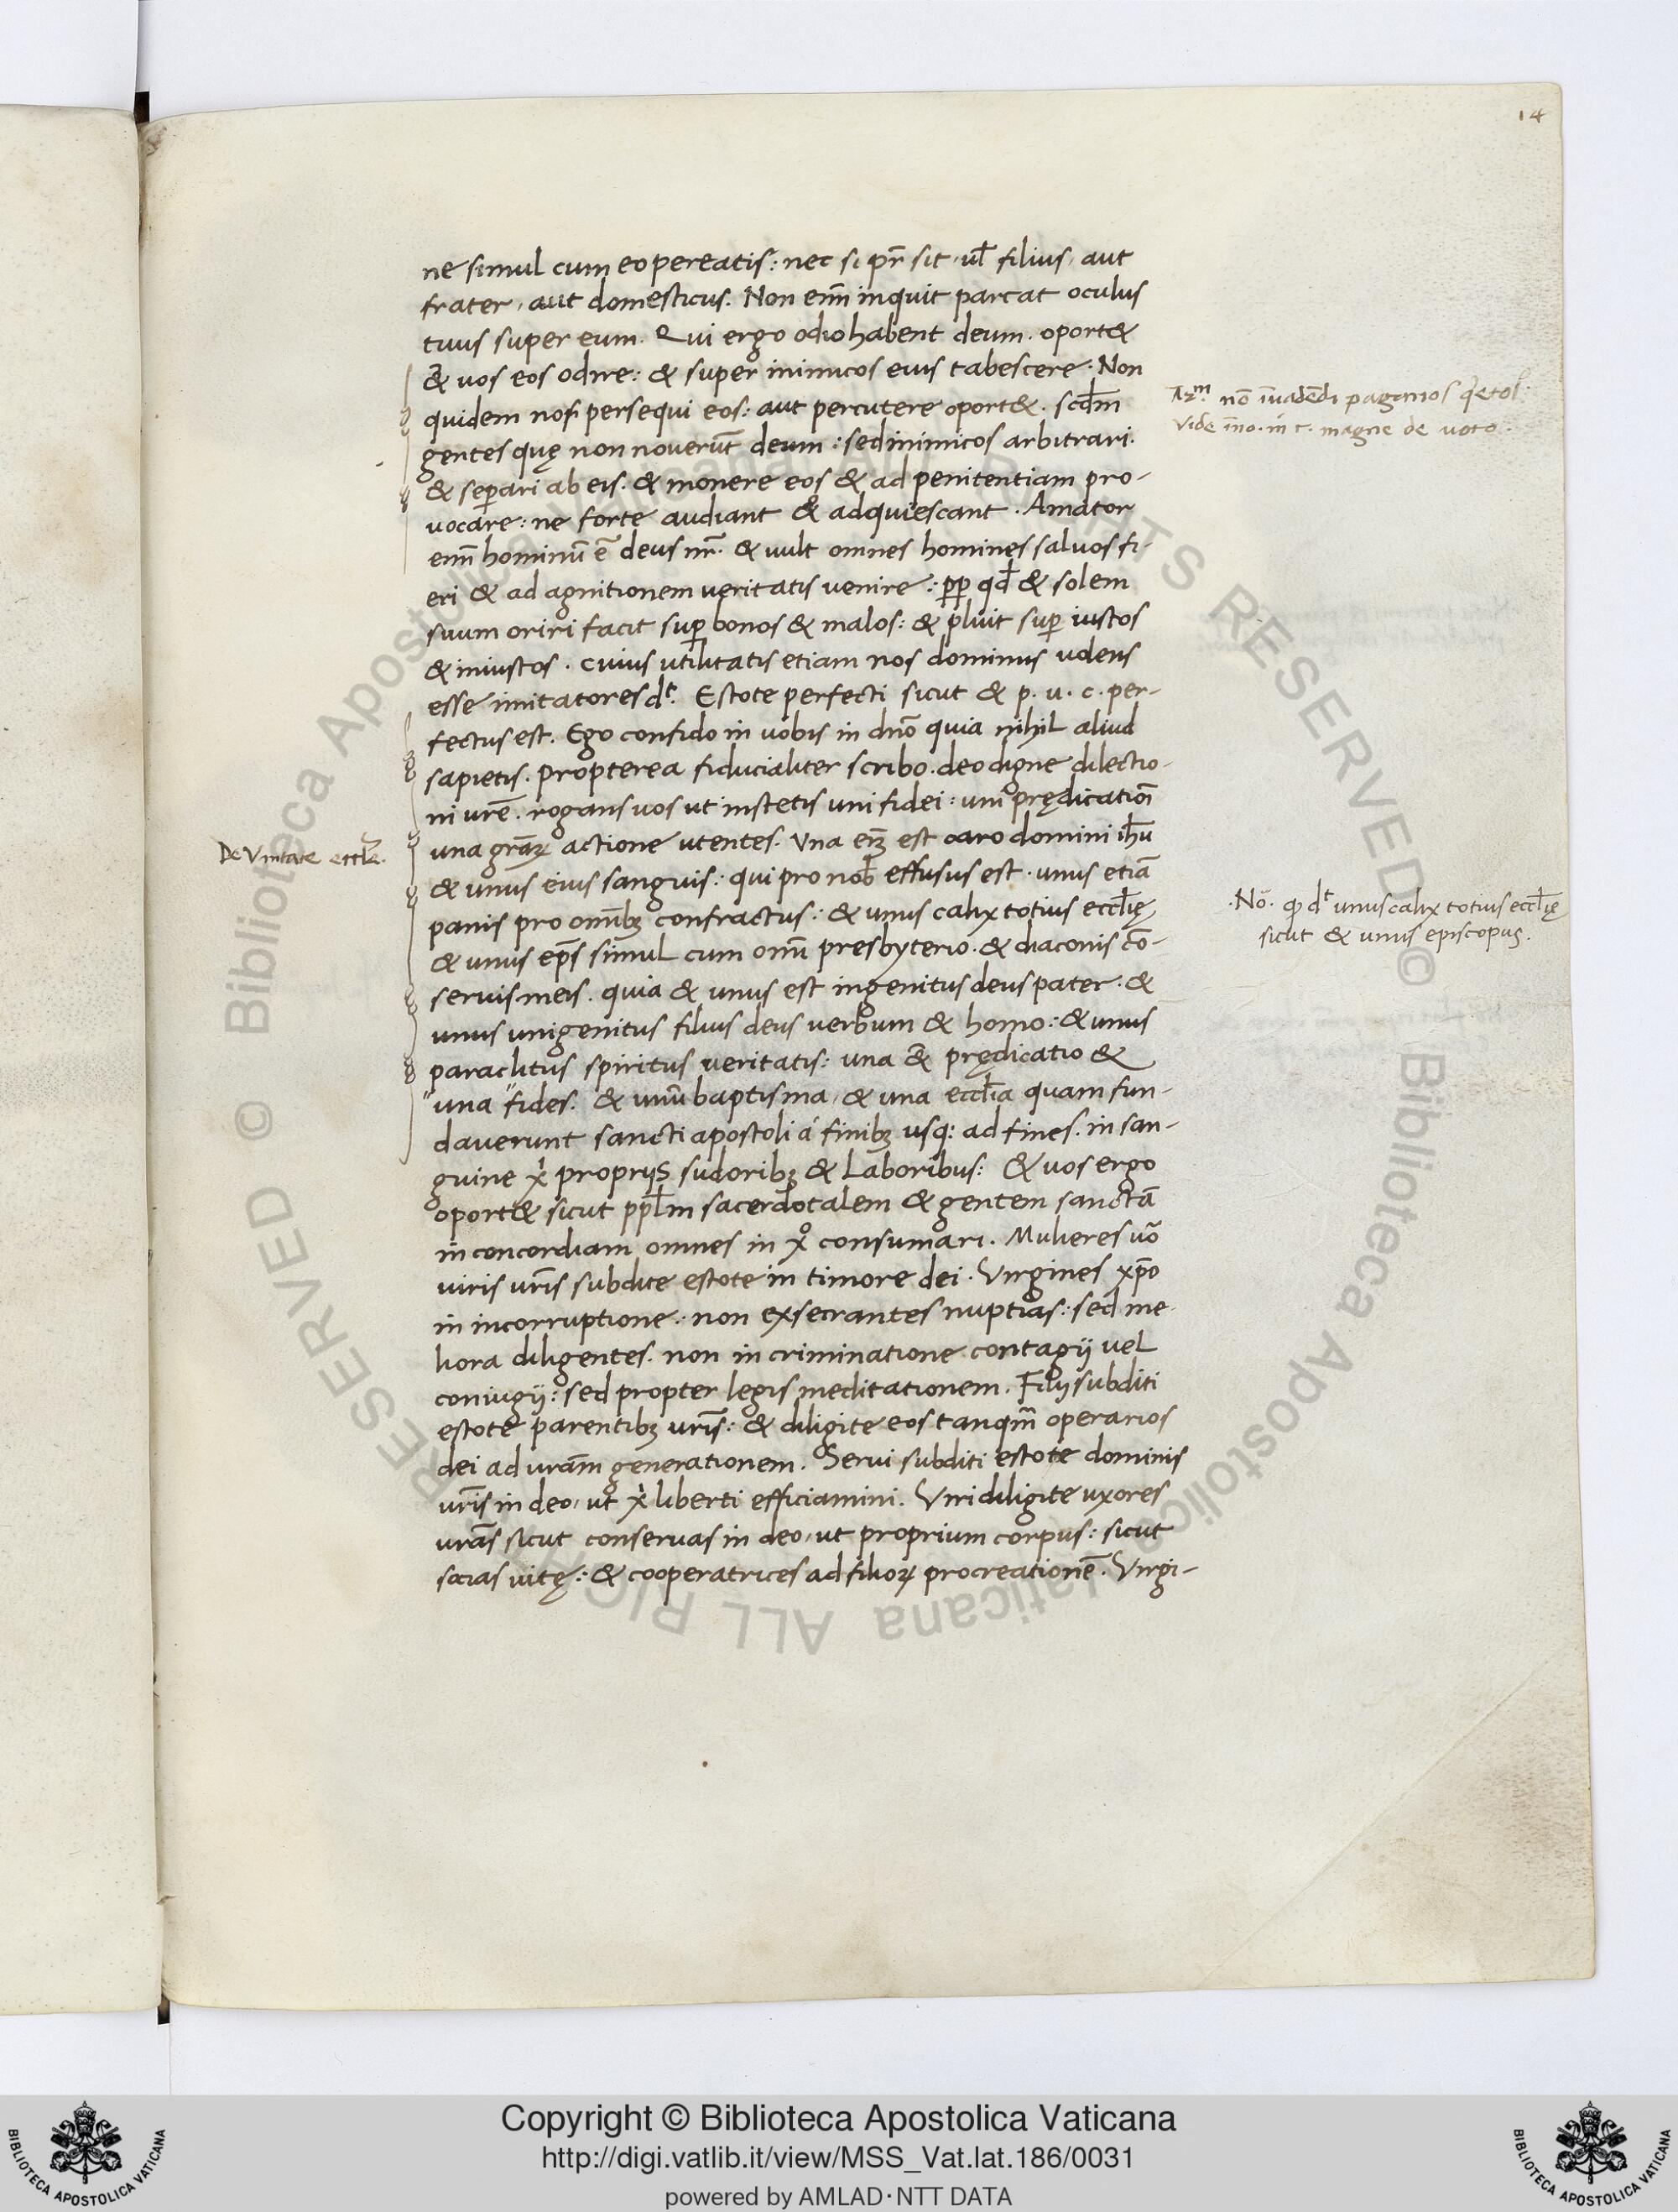 14
ne simul cum eo pereatis: nec si pr̄ sit, ul̄ filius, aut
frater, aut domesticus. Non enīm inquit parcat oculus
tuus super eum. Qui ergo odio habent deum. oport&
& uos eos odire: & super inimicos eius tabescere. Non
quidem nos persequi eos: aut percutere oport&. scdm̄
gentes quę non nouerūt deum: sed inimicos arbitrari.
& sep̄ari ab eis. & monere eos & ad penitentiam pro-
vocare: ne forte audiant & adquiescant. Amator
enīm hominū ē deus nr̄. & uult omnes homines saluos fi-
eri & ad agnitionem veritatis venire: pp̄ qd̄ & solem
suum oriri facit sup̄ bonos & malos: & pluit sup̄ iustos
& iniustos. cuius utilitatis etiam nos dominus uolens
esse imitatores dt. Estote perfecti sicut & p. u. c. per-
fectus est. Ego confido in uobis in dn̄o quia nihil aliud
sapietis. propterea fiducialiter scribo. deo digne dilectio-
ni urē. rogans uos ut instetis uni fidei: uni prędication̄
una grāꝝ actione utentes. Una enīm est caro domini ih̄u
& unus eius sanguis: qui pro nob̄ effusus est. unus etiā
panis pro omībꝫ confractus: & unus calix totius eccl̄ię
& unus ep̄s simul cum omī presbyterio. & diaconis cō-
servis meis. quia & unus est ingenitus deus pater. &
unus unigenitus filius deus verbum & homo: & unus
paraclitus spiritus veritatis: una & prędicatio &
"una "fides. & unū baptisma, & una eccl̄ia quam fun-
daverunt sancti apostoli á finibꝫ usqꝫ ad fines. in san-
guine xi proprijs sudoribꝫ & Laboribus: & vos ergo
oport& sicut ppl̄m sacerdotalem & gentem sanctā
in concordiam omnes in xo consumari. Mulieres uō
viris uris̄ subdite estote in timore dei. Virgines xp̄o
in incorruptione: non exsecrantes nuptias: sed me
liora diligentes. non in criminatione contagij vel
coniugij: sed propter legis meditationem. Filij subditi
estote parentibꝫ uris̄: & diligite eos tanqm̄ operarios
dei ad uram̄ generationem. Servi subditi estote dominis
uris̄ in deo, ut xi liberti efficiamini. Viri diligite uxores
uras̄ sicut conseruas in deo, ut proprium corpus: sicut
socias uitę: & cooperatrices ad filioꝝ procreationē. Virgi-
nō inuadēdi paganos
Vide īno. in c. magne de voto.
De Vnitate eccl̄e.
.Nō. ꝙ dt unus calix totius eccl̄ię
sicut & unus episcopus.
© Biblioteca Apostolica Vaticana ALL RIGHTS RESERVED
© Biblioteca Apostolica Vaticana ALL RIGHTS RESERVED
BIBLIOTECA APOSTOLICA VATICANA
Copyright © Biblioteca Apostolica Vaticana
http://digi.vatlib.it/view/MSS_Vat.lat.186/0031
powered by AMLAD·NTT DATA
BIBLIOTECA APOSTOLICA VATICANA